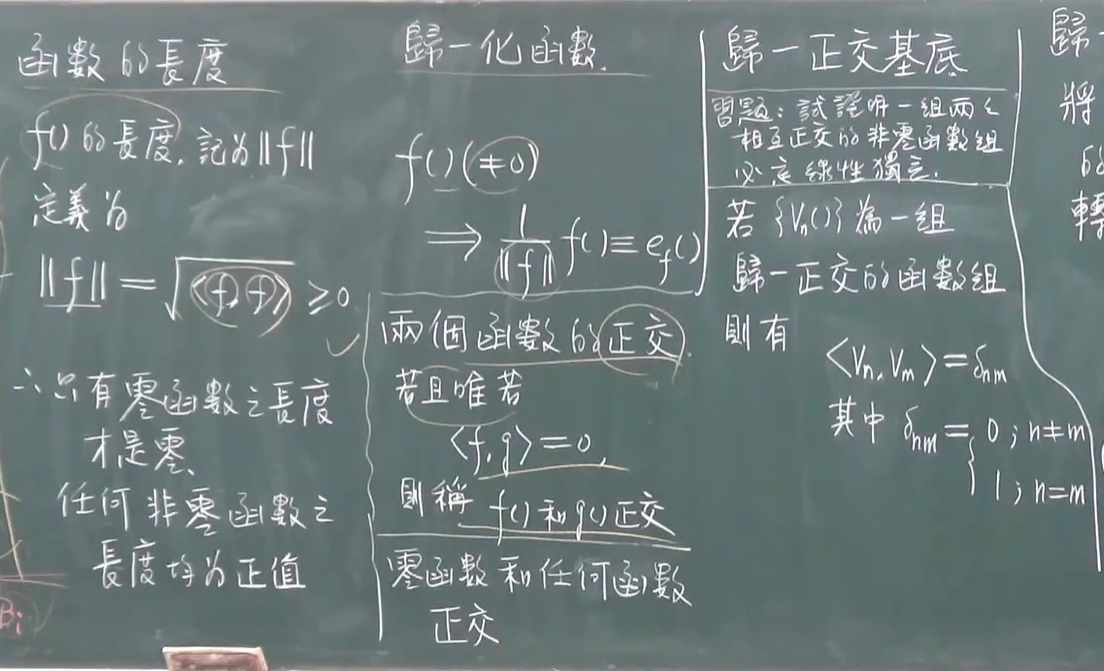 函數的長度
f()的長度,記為‖f‖
定義為
‖f‖=√<f,f> ≥0
∴只有零函數之長度
才是零、
任何非零函數之
長度均為正值
歸一化函數.
f()(≠0)
⇒ 1/‖f‖ f()≡e_f()
兩個函數的正交.
若且唯若
<f,g>=0,
則稱 f()和g()正交
零函數和任何函數
正交
歸一正交基底
習題:試證明一組兩兩
相互正交的非零函數組
必定線性獨立.
若{Vn()}為一組
歸一正交的函數組
則有
<Vn,Vm>=δnm
其中 δnm={0;n≠m
1;n=m
歸一
將
的
轉
Bi